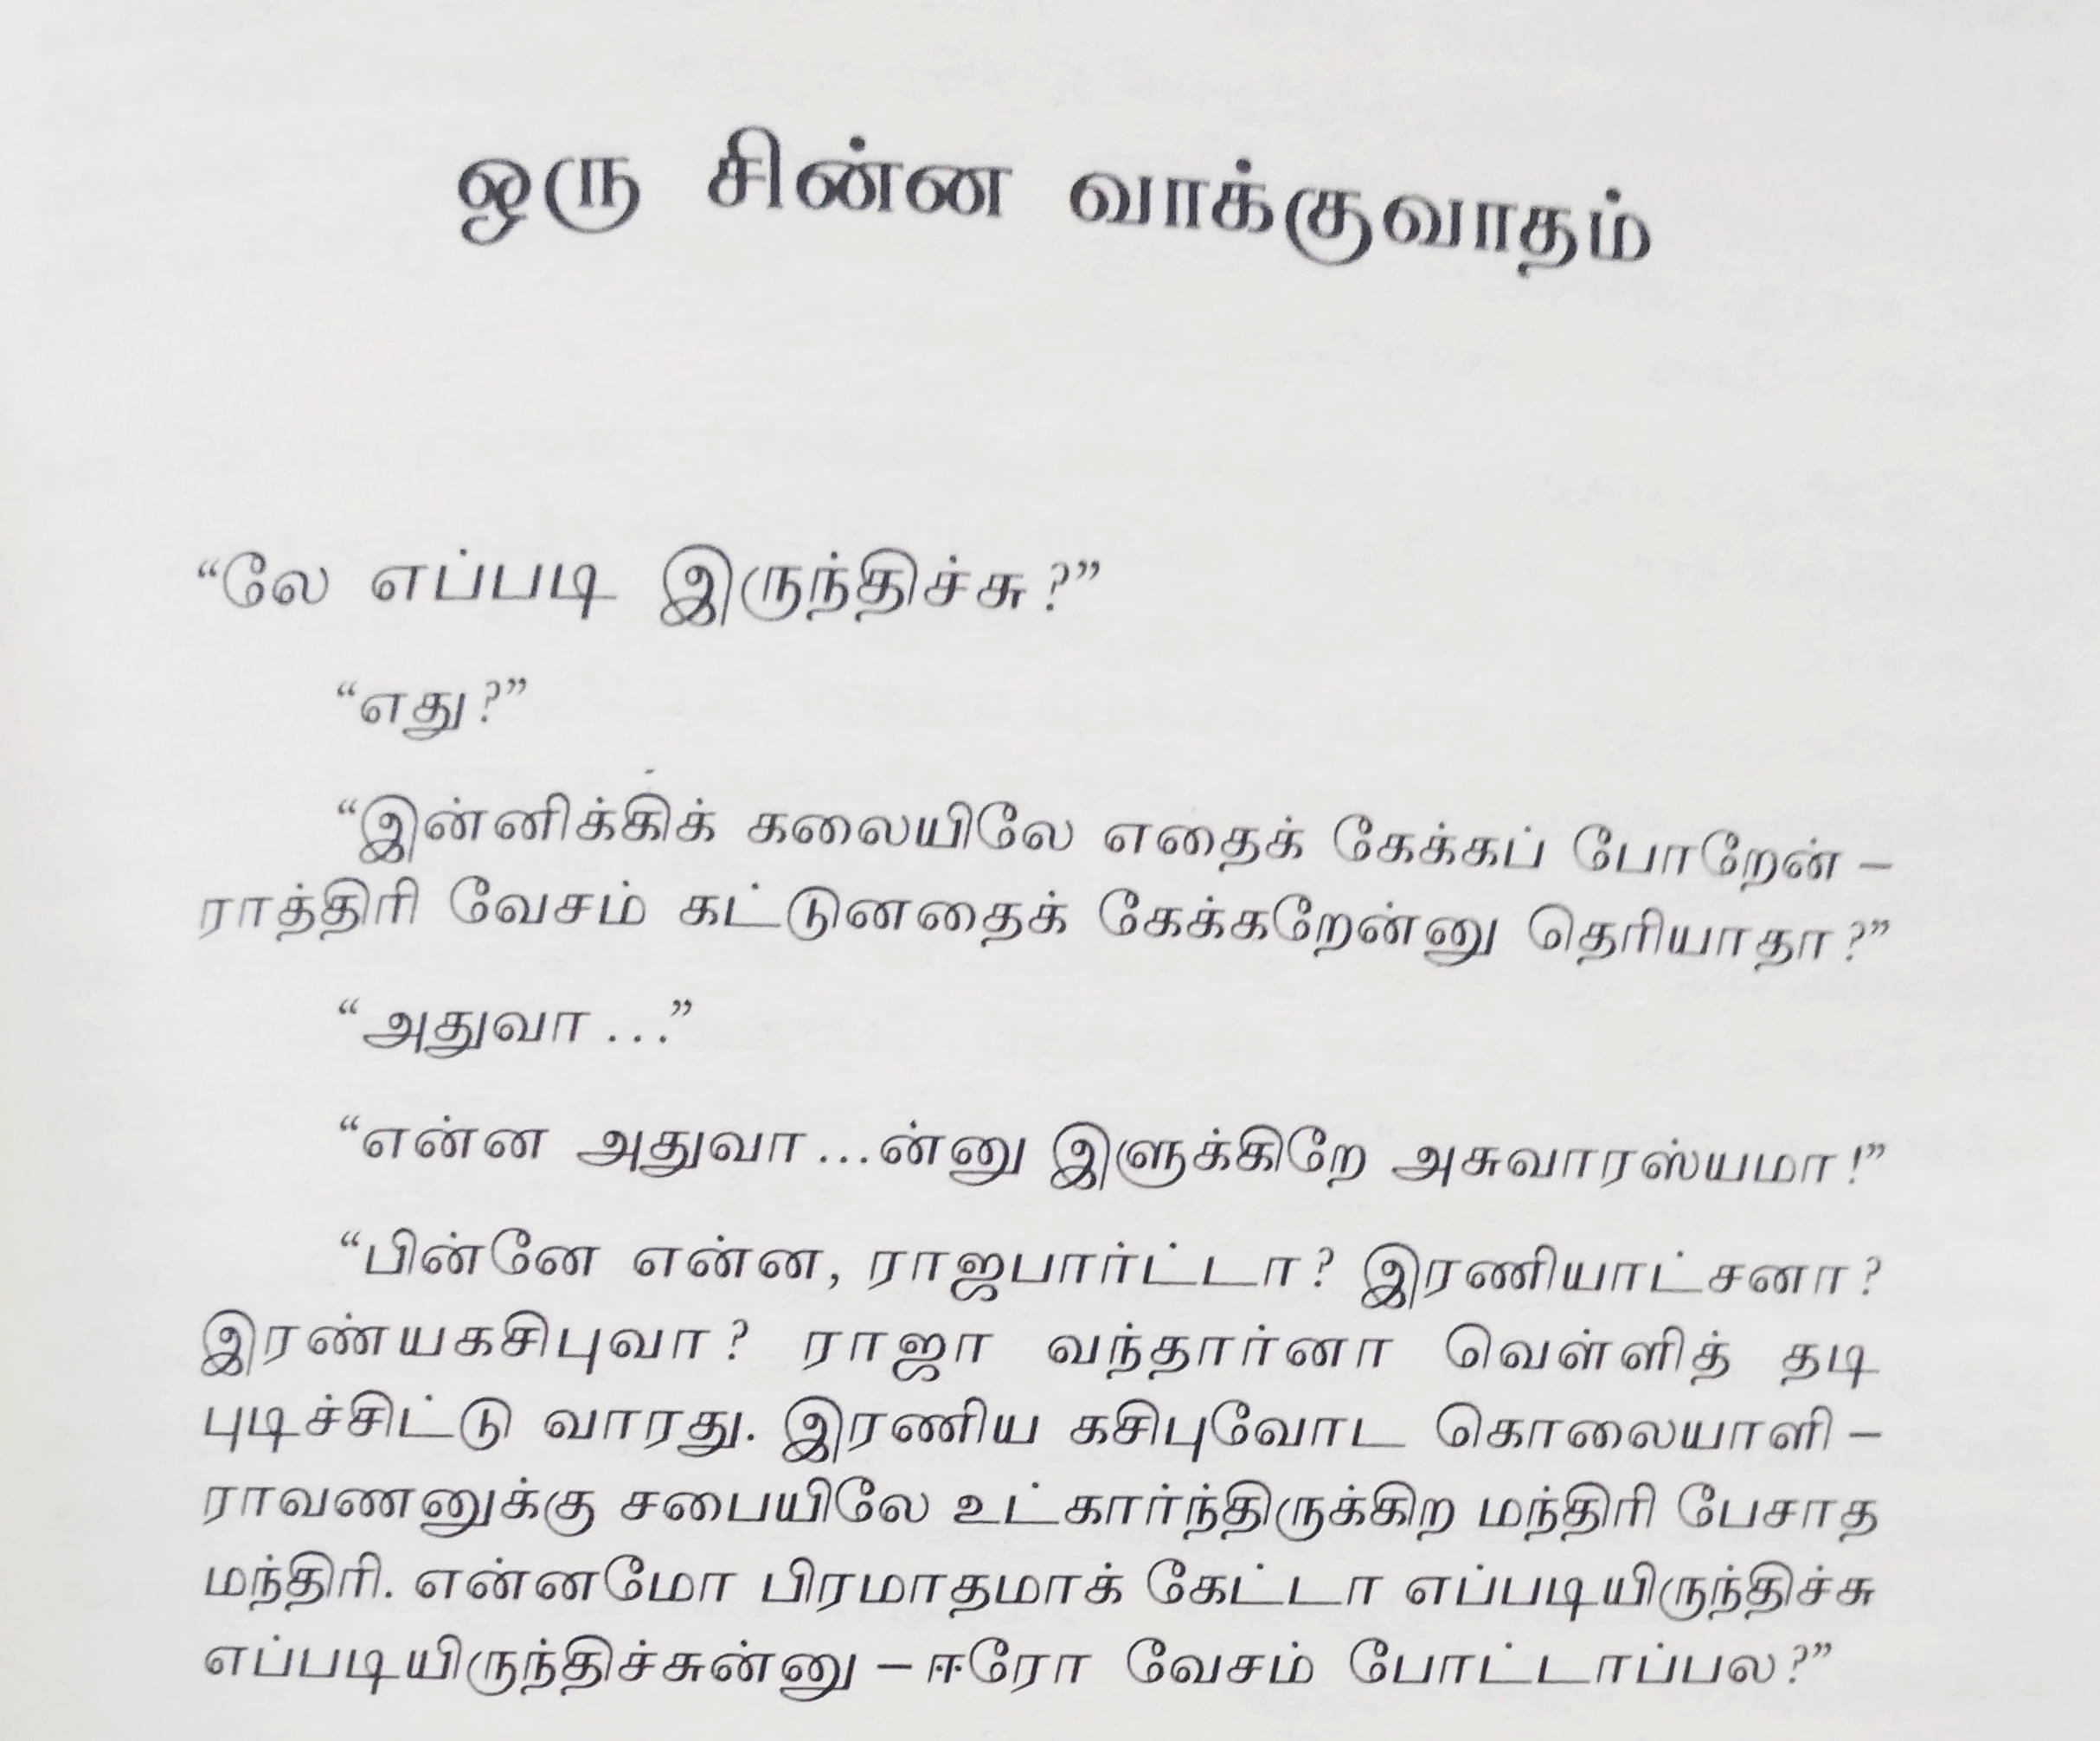 ஒரு சின்ன வாக்குவாதம்
“லே எப்படி இருந்திச்சு?”
“எது?”
“இன்னிக்கிக் கலையிலே எதைக் கேக்கப் போறேன் –
ராத்திரி வேசம் கட்டுனதைக் கேக்கறேன்னு தெரியாதா?”
“அதுவா...”
“என்ன அதுவா...ன்னு இளுக்கிறே அசுவாரஸ்யமா!”
“பின்னே என்ன, ராஜபார்ட்டா? இரணியாட்சனா?
இரண்யகசிபுவா? ராஜா வந்தார்னா வெள்ளித் தடி
புடிச்சிட்டு வாரது. இரணிய கசிபுவோட கொலையாளி –
ராவணனுக்கு சபையிலே உட்கார்ந்திருக்கிற மந்திரி பேசாத
மந்திரி. என்னமோ பிரமாதமாக் கேட்டா எப்படியிருந்திச்சு
எப்படியிருந்திச்சுன்னு – ஈரோ வேசம் போட்டாப்பல?”